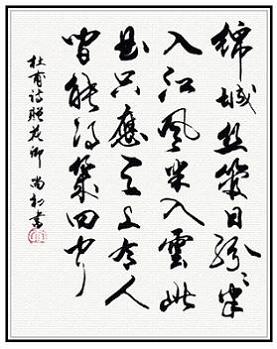 錦城丝管日紛〻半
入江風半入雲此
曲只應天上有人
間能得幾回聞
杜甫诗赠花卿 尚 書